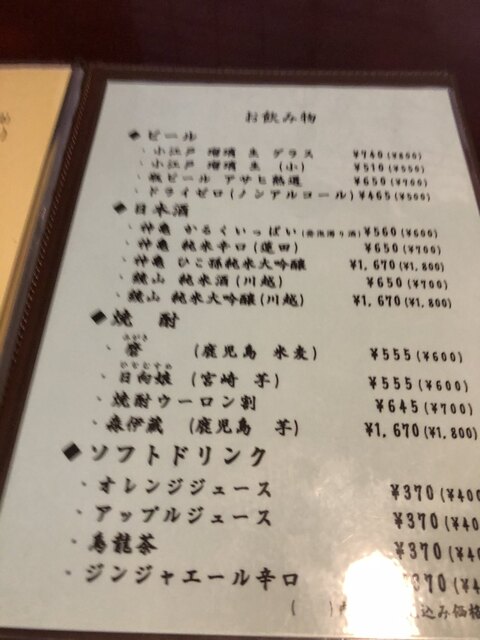 お飲み物
◆ビール
・小江戸 瑠璃 生 グラス ¥740(¥800)
・小江戸 瑠璃 生 (小) ¥510(¥550)
・瓶ビール アサヒ熟選 ¥650(¥700)
・ドライゼロ(ノンアルコール) ¥465(¥500)
◆日本酒
・神亀 かるくいっぱい(発泡濁り酒) ¥560(¥600)
・神亀 純米辛口(蓮田) ¥650(¥700)
・神亀 ひこ孫純米大吟醸 ¥1,670(¥1,800)
・鏡山 純米酒(川越) ¥650(¥700)
・鏡山 純米大吟醸(川越) ¥1,670(¥1,800)
◆焼 酎
・(鹿児島 米麦) ¥555(¥600)
・日向娘 (宮崎 芋) ¥555(¥600)
・焼酎ウーロン割 ¥645(¥700)
・森伊蔵 (鹿児島 芋) ¥1,670(¥1,800
◆ソフトドリンク
・オレンジジュース ¥370(¥40
・アップルジュース ¥370(¥40
・烏龍茶 ¥370(¥40
・ジンジャエール辛口 370(¥4
( ) 込み価格